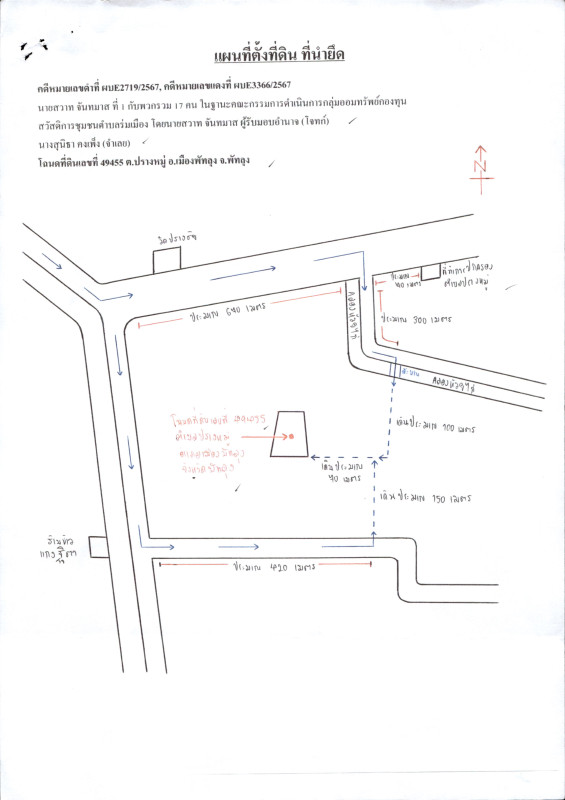 แผนที่ตั้งที่ดิน ที่นำยึด
คดีหมายเลขดำที่ ผบE2719/2567, คดีหมายเลขแดงที่ ผบE3366/2567
นายสวาท จันทมาส ที่ 1 กับพวกรวม 17 คน ในฐานะคณะกรรมการดำเนินการกลุ่มออมทรัพย์กองทุน
สวัสดิการชุมชนตำบลร่มเมือง โดยนายสวาท จันทมาส ผู้รับมอบอำนาจ (โจทก์)
นางสุนิธา คงเพ็ง (จำเลย)
โฉนดที่ดินเลขที่ 49455 ต.ปรางหมู่ อ.เมืองพัทลุง จ.พัทลุง
N
ประมาณ
40 เมตร
ที่ทำการปกครอง
ตำบลปรางหมู่
ประมาณ 640 เมตร
ประมาณ 300 เมตร
สะพาน
เดินประมาณ 100 เมตร
โฉนดที่ดินเลขที่ 49455
ตำบลปรางหมู่
อำเภอเมืองพัทลุง
จังหวัดพัทลุง
เดินประมาณ
70 เมตร
เดินประมาณ 150 เมตร
ร้านข้าว
ประมาณ 420 เมตร